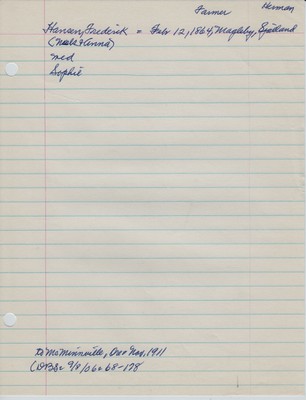 Farmer Herman
Hansen, Frederick = Febr 12, 1864, Magleby, Sjalland
(Niels & Anna)
med
Sophie
to McMinnville, Ore Nov, 1911
(DBS= 9/8/06= 68-178